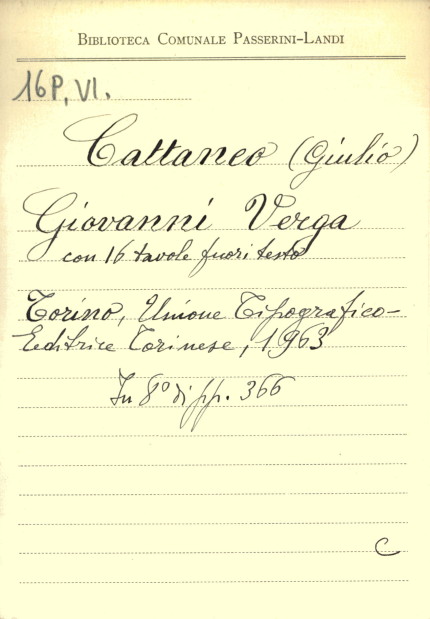 BIBLIOTECA COMUNALE PASSERINI-LANDI
16P, VI.
Cattaneo (Giulio)
Giovanni Verga
con 16 tavole fuori testo
Torino, Unione Tipografico-
Editrice Torinese, 1963
In 8° di pp. 366
C